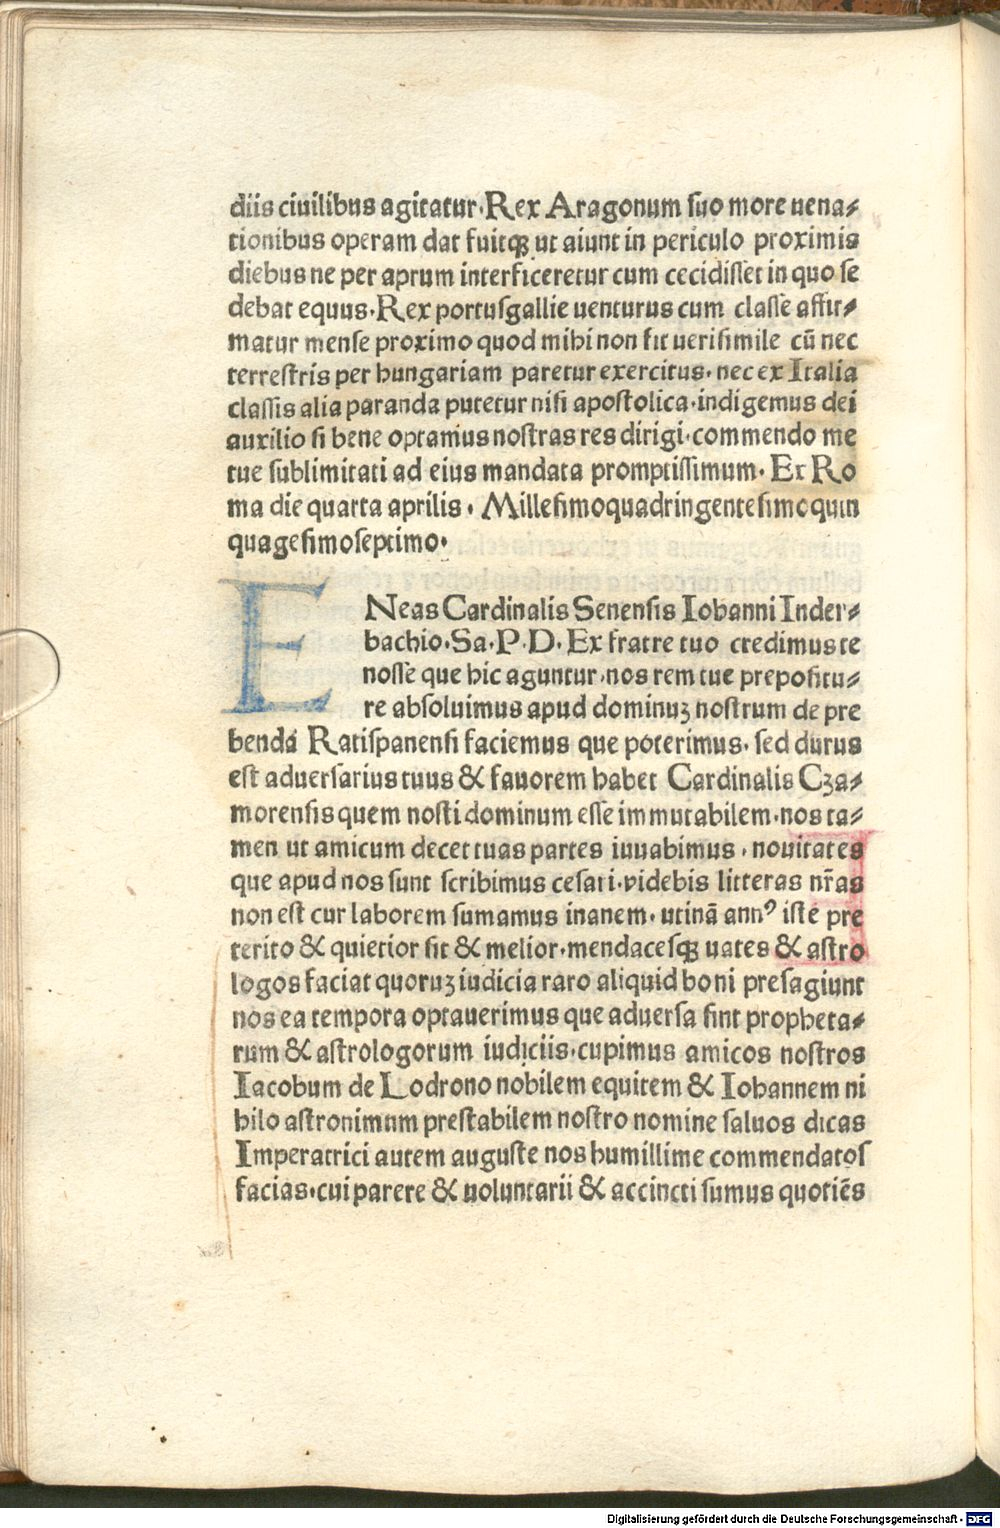 diis ciuilibus agitatur·Rex Aragonum suo more uena⸗
tionibus operam dat fuitqꝫ ut aiunt in periculo proximis
diebus ne per aprum interficeretur cum cecidisset in quo se
debat equus·Rex portusgallie uenturus cum classe affir⸗
matur mense proximo quod mihi non fit uerisimile cū nec
terrestris per hungariam paretur exercitus·nec ex Italia
classis alia paranda putetur nisi apostolica·indigemus dei
auxilio si bene optamus nostras res dirigi·commendo me
tue sublimitati ad eius mandata promptissimum·Ex Ro
ma die quarta aprilis·Millesimoquadringentesimoquin
quagesimoseptimo·
ENeas Cardinalis Senensis Iohanni Inder⸗
bachio·Sa·P·D·Ex fratre tuo credimus te
nosse que hic aguntur·nos rem tue prepositu⸗
re absoluimus apud dominuꝫ nostrum de pre
benda Ratispanensi faciemus que poterimus·sed durus
est aduersarius tuus & fauorem habet Cardinalis Cza⸗
morensis quem nosti dominum esse immutabilem·nos ta⸗
men ut amicum decet tuas partes iuuabimus·nouitates
que apud nos sunt scribimus cesari·videbis litteras nr̄as
non est cur laborem sumamus inanem·utinā annꝰ iste pre
terito & quietior sit & melior·mendacesqꝫ uates & astro
logos faciat quoruꝫ iudicia raro aliquid boni presagiunt
nos ea tempora optauerimus que aduersa sint propheta⸗
rum & astrologorum iudiciis·cupimus amicos nostros
Iacobum de Lodrono nobilem equitem & Iohannem ni
hilo astronimum prestabilem nostro nomine saluos dicas
Imperatrici autem auguste nos humillime commendatos
facias·cui parere & uoluntarii & accincti sumus quotiēs
Digitalisierung gefördert durch die Deutsche Forschungsgemeinschaft - DFG